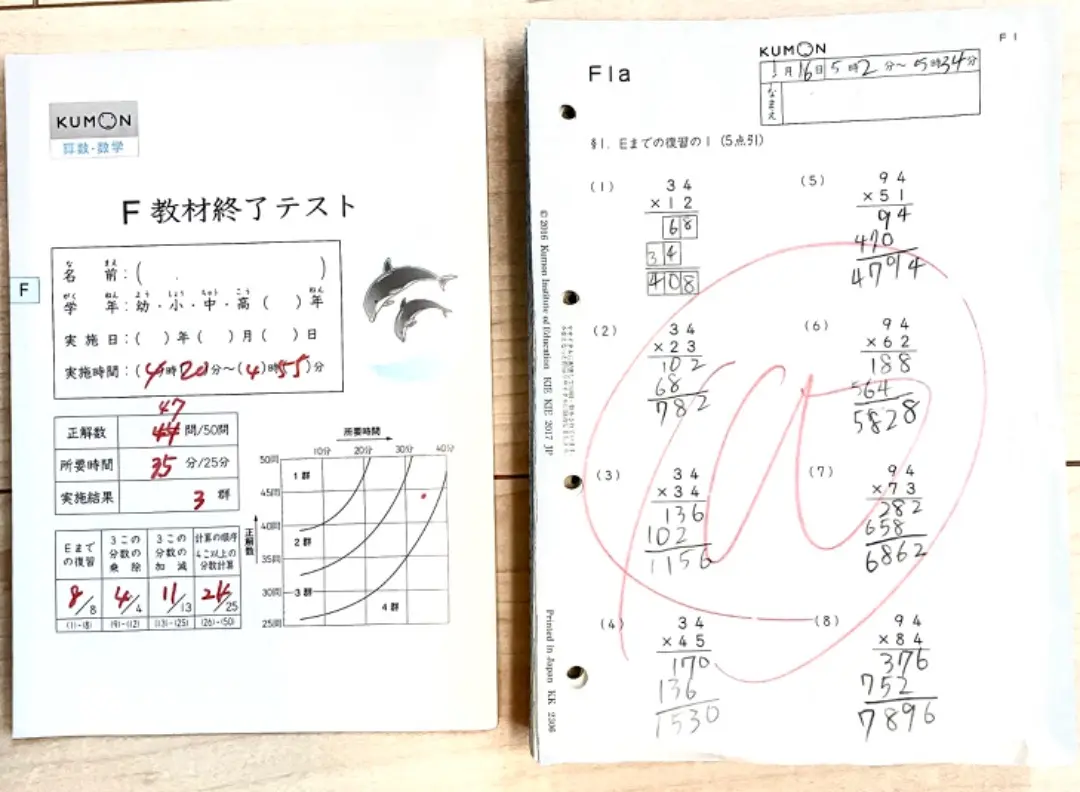 KUMON
算数・数学
F 教材終了テスト
F
な まえ
名 前:( )
がく ねん よう しょう ちゅう こう ねん
学 年:幼・小・中・高( )年
実施日:( )年( )月( )日
実施時間:(4)時20分~(4)時55)分
47
正解数 44 問/50問
所要時間 35 分/25分
実施結果 3 群
Eまでの復習 8/8 (1)-(8)
3この分数の乗除 4/4 (9)-(12)
3この分数の加減 11/13 (13)-(25)
計算の順序 4こ以上の分数計算 /25 (26)-(50)
所要時間
10分 20分 30分 40分
正解数
50問
45問
40問
35問
30問
25問
1群
2群
3群
4群
F1
F1a
KUMON
1月16日5時2分~5時34分
なまえ
§1. Eまでの復習の1 (5点引)
(1)
34
×12
68
34
408
(2)
34
×23
102
68
782
(3)
34
×34
136
102
1156
(4)
34
×45
170
136
1530
(5)
94
×51
94
470
4794
(6)
94
×62
188
564
5828
(7)
94
×73
282
658
6862
(8)
94
×84
376
752
7896
© 2016 Kumon Institute of Education KIE KIE 2017 JP
Printed in Japan KK 2306